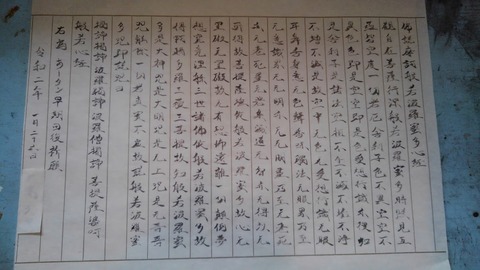 佛説摩訶般若波羅蜜多心経
観自在菩薩行深般若波羅蜜多時照見五
蘊皆空度一切苦厄舎利子色不異空空不
異色色即是空空即是色受想行識亦復如
是舎利子是諸法空相不生不滅不垢不浄
不増不減是故空中无色无受想行識无眼
耳鼻舌身意无色声香味触法无眼界乃至
无意識界无无明亦无无明尽乃至无老死
亦无老死尽无苦集滅道无智亦无得以无
所得故菩提薩埵依般若波羅蜜多故心无
罣礙无罣礙故无有恐怖遠離一切顛倒夢
想究竟涅槃三世諸佛依般若波羅蜜多故
得阿耨多羅三藐三菩提故知般若波羅蜜
多是大神呪是大明呪是无上呪是无等等
呪能除一切苦真実不虚故説般若波羅蜜
多呪即説呪曰
揭諦揭諦波羅僧揭諦 菩提薩婆訶
般若心経
右為 早期回復祈願
令和二年 一月二十六日